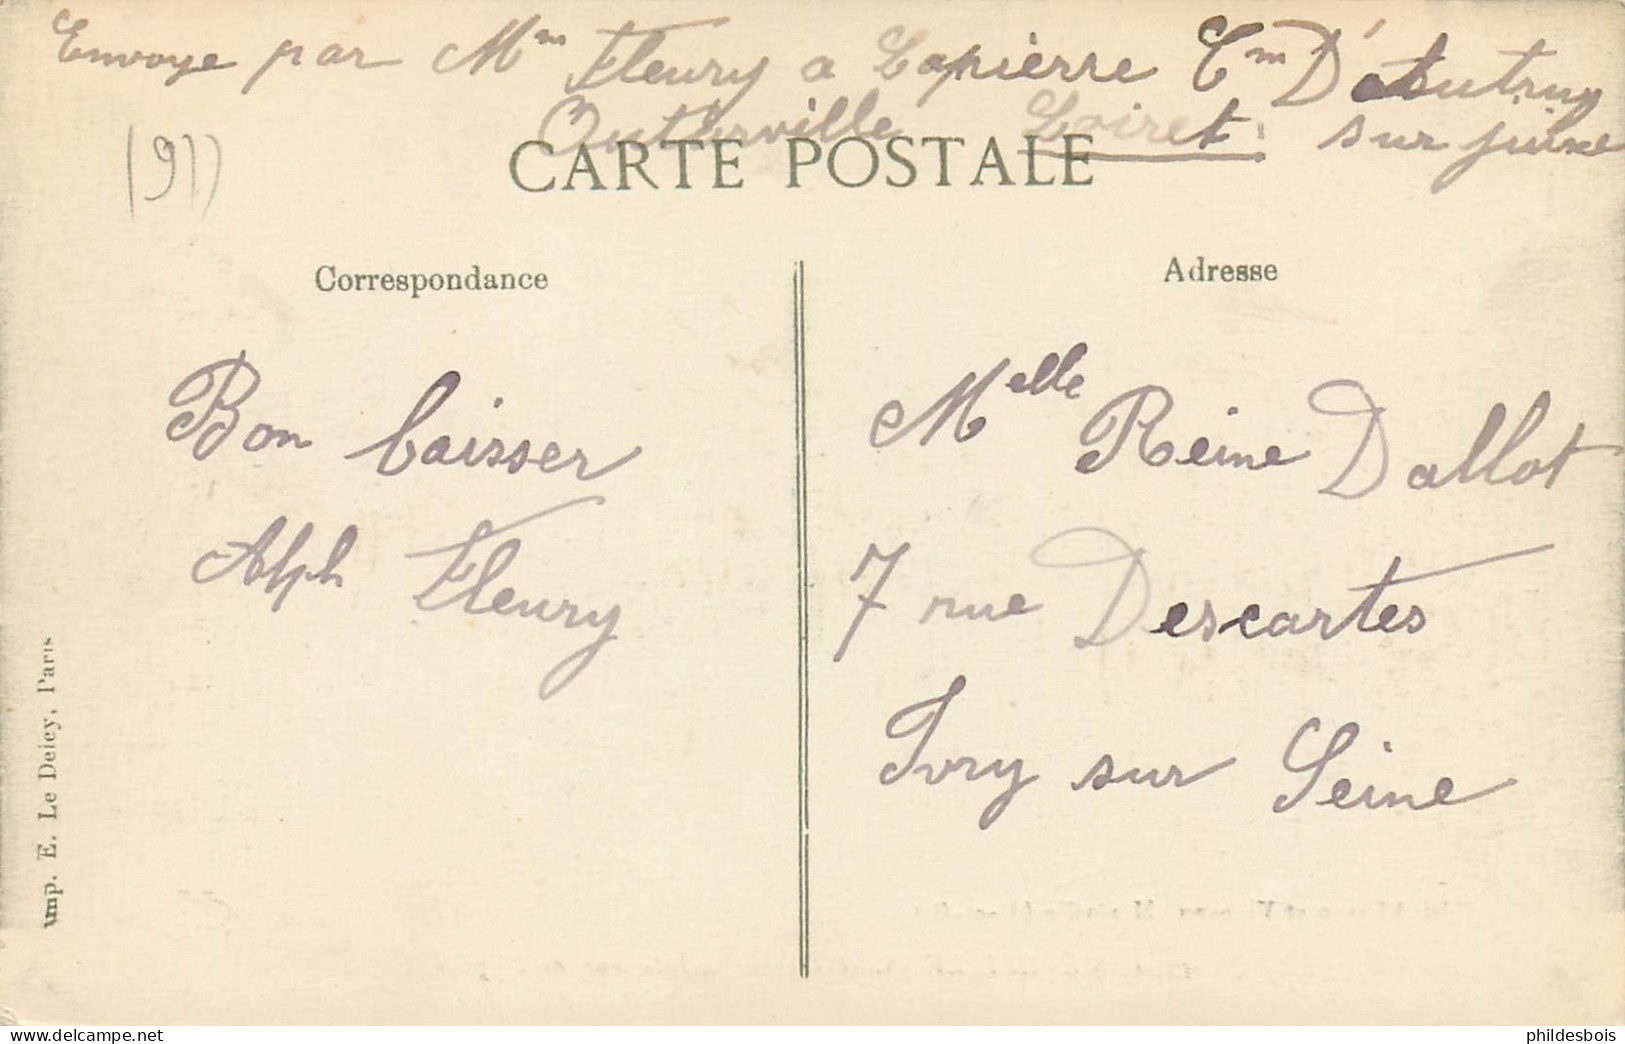 Envoye par Mm Fleury a Lapierre Cm D'Autruy
Outarville Loiret sur juine
(91)
CARTE POSTALE
Correspondance
Adresse
Bon baisser
Alph Fleury
Melle Reine Dallot
7 rue Descartes
Ivry sur Seine
Imp. E. Le Deley, Paris
delcampe.net
phildesbois